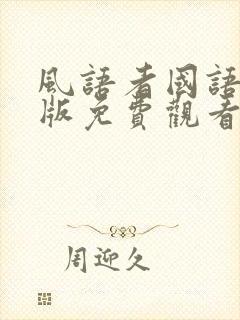 風語者國語
版免費觀看
周迎久